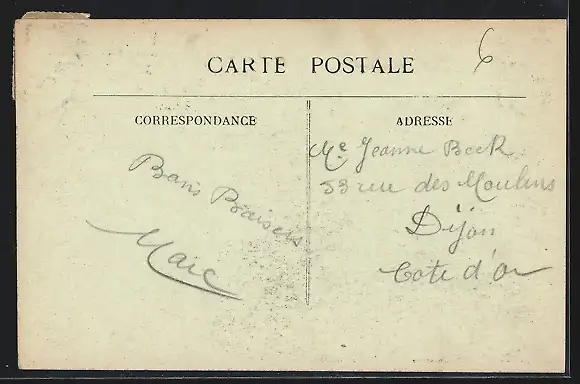 6
CARTE POSTALE
CORRESPONDANCE
Bons Baisers
Marc
ADRESSE
Me Jeanne Beek
53 rue des Moulins
Dijon
Cote d'or